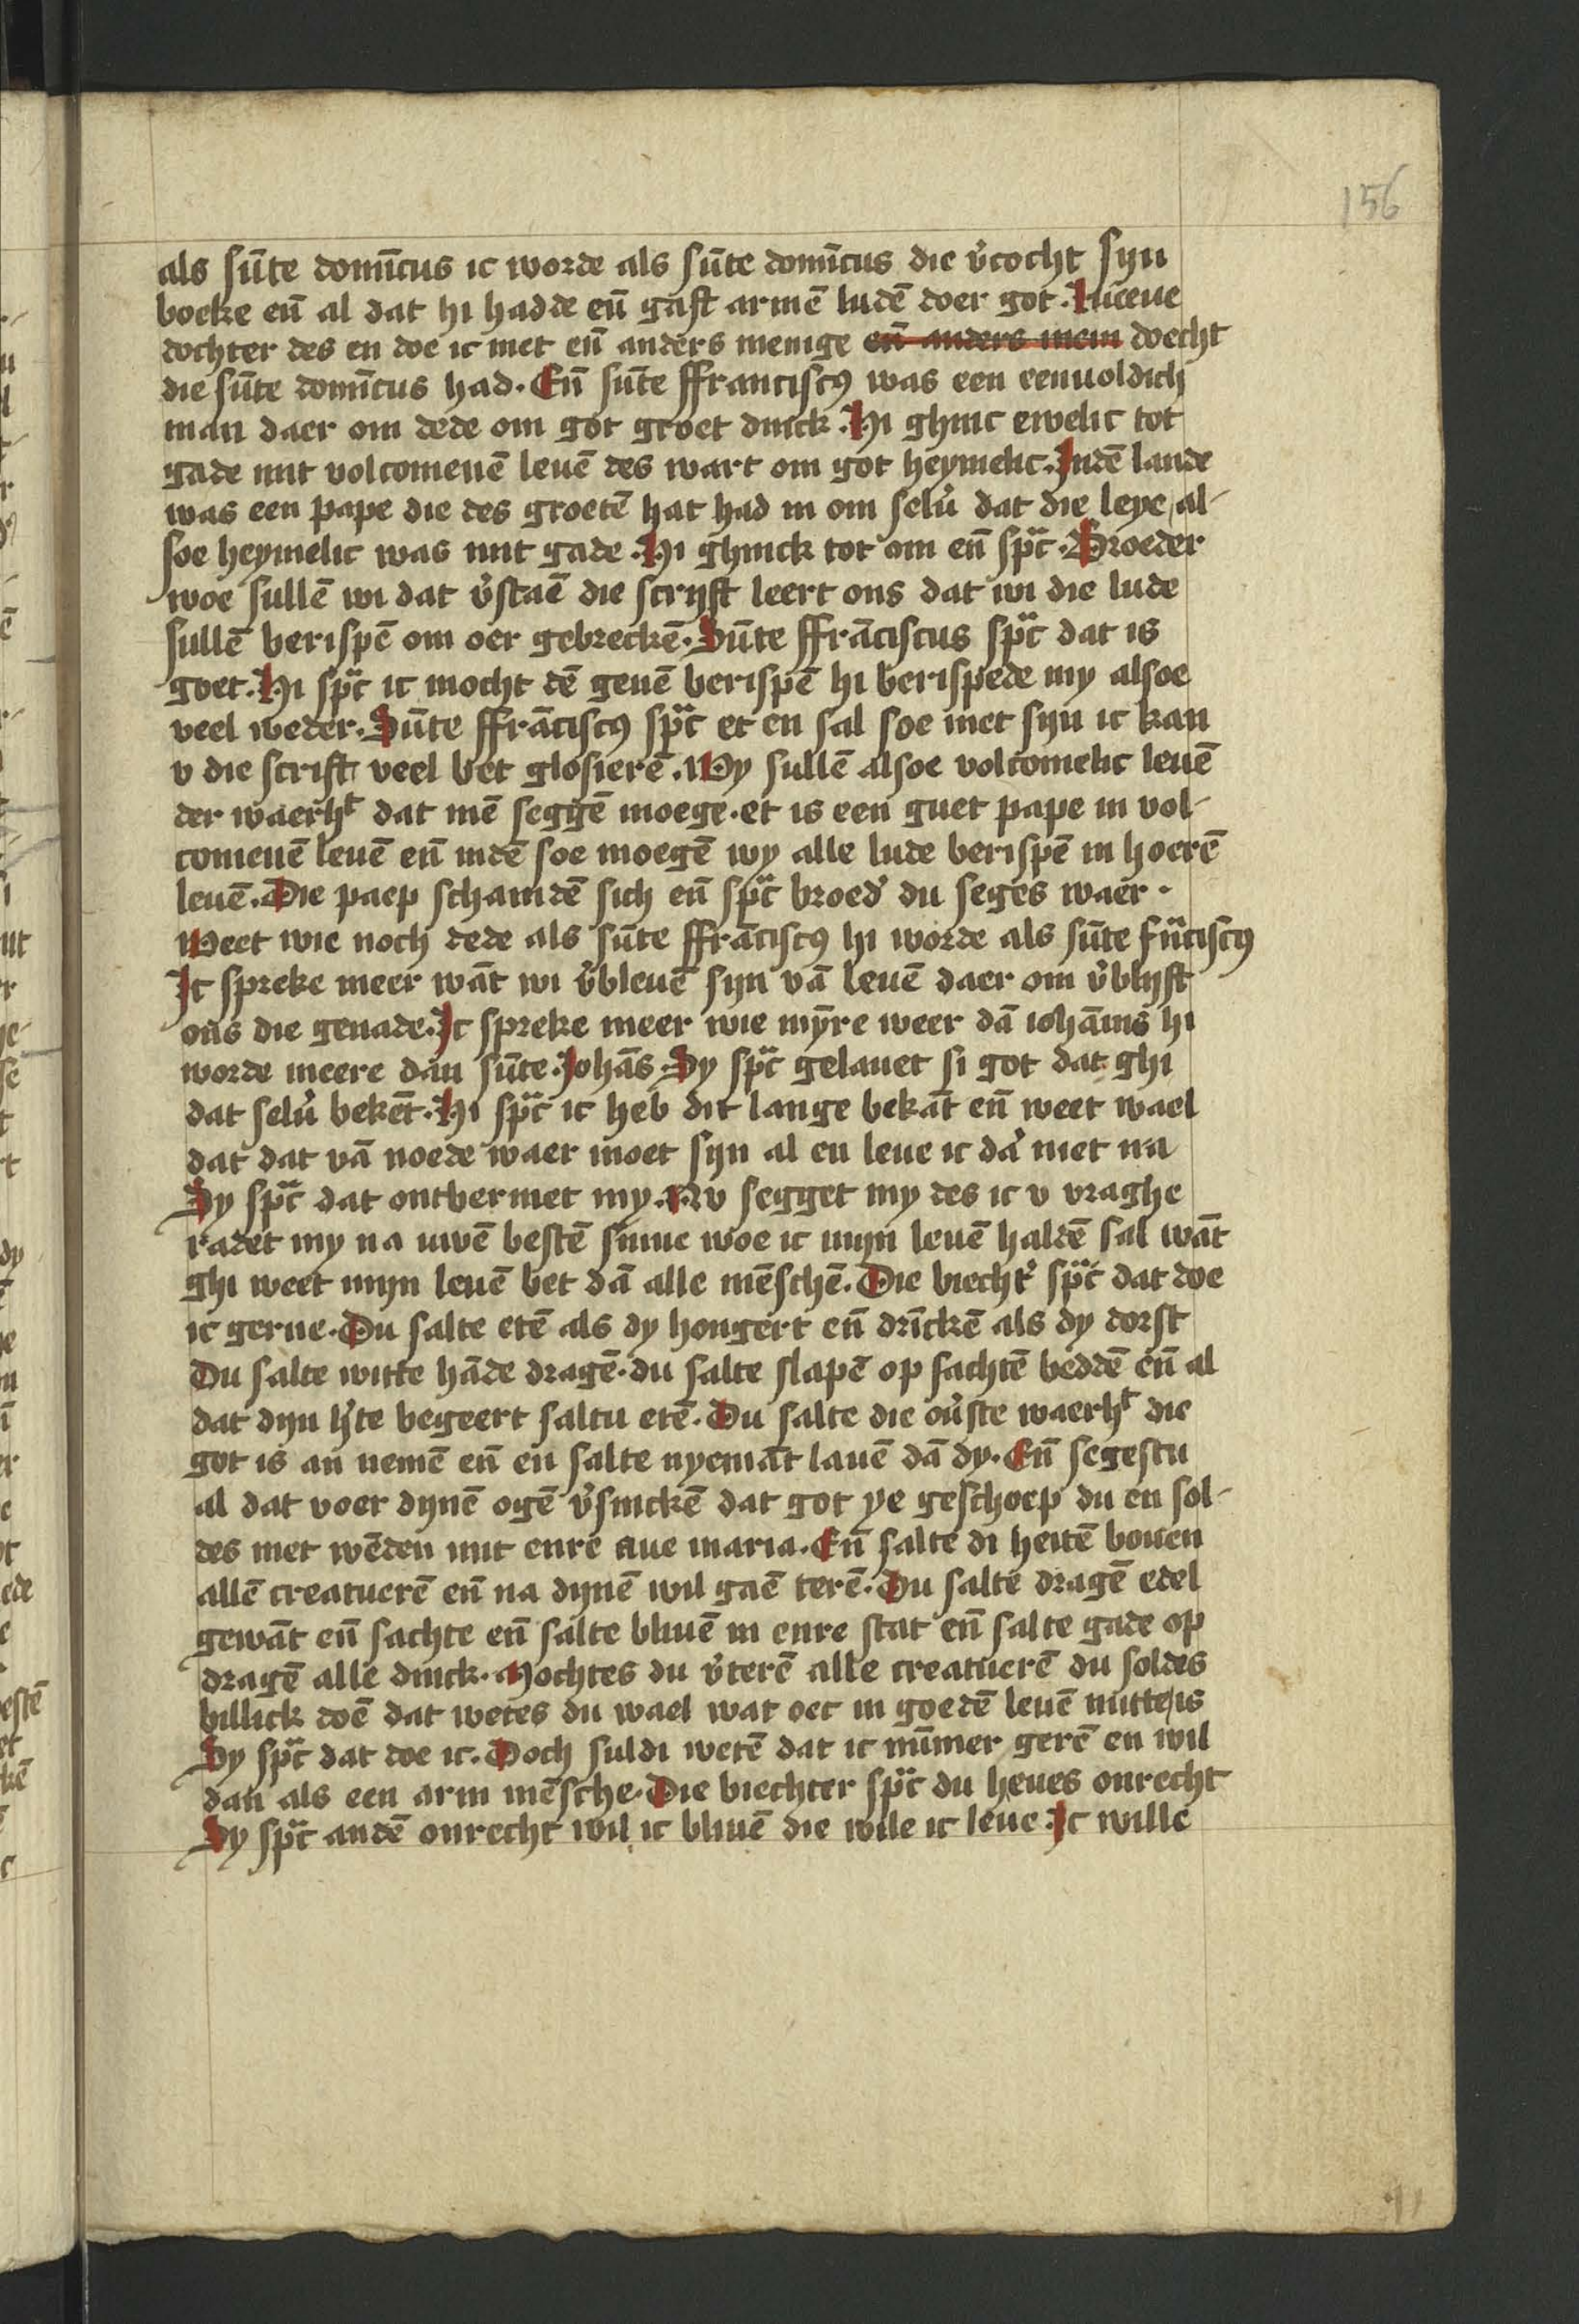 156
als sūte domīcus ic worde als sūte domīcus die v̓cocht syn
boeke eñ al dat hi hadde eñ gaft armē ludē doer got. Lieue
dochter des en doe ic niet eñ anders menige eñ anders meni doecht
die sūte domīcus had. Eñ sūte ffranciscꝰ was een eenuoldich
man daer om dede om got groet dinck. Hi ghinc ewelic tot
gade mit volcomenē leuē des wart om got heymelic. Indē lande
was een pape die des groetē hat had in om selu̓ dat die leye al-
soe heymelic was mit gade. Hi ghinck tot om eñ sprac. Broeder
woe sullē wi dat v̓staē die scryft leert ons dat wi die lude
sullē berispē om oer gebreckē. Sūte ffrāciscus sprac dat is
goet. Hi sprac ic mocht dē geuē berispē hi berispede my alsoe
veel weder. Sūte ffrāciscꝰ sprac et en sal soe niet syn ic kan
v die scrift veel bet glosierē. Wy sullē alsoe volcomelic leuē
der waerht dat mē seggē moege. et is een guet pape in vol-
comenē leuē eñ indē soe moegē wy alle lude berispē in hoerē
leuē. Die paep schamdē sich eñ sprac broed̓ du seges waer.
Weet wie noch dede als sūte ffrāciscꝰ hi worde als sūte frāciscꝰ
Ic spreke meer wāt wi v̓bleuē syn vā leuē daer om v̓blyft
ons die genade. Ic spreke meer wie mȳre weer dā iohānis hi
worde meere dan sūte Johās. Sy sprac gelauet si got dat ghi
dat selu̓ bekēt. Hi sprac ic heb dit lange bekāt eñ weet wael
dat dat vā noede waer moet syn al en leue ic da̓ niet na
Sy sprac dat ontbermet my. Nv segget my des ic v vraghe
radet my na uwē bestē sinne woe ic myn leuē haldē sal wāt
ghi weet myn leuē bet dā alle mēschē. Die biecht̓ sprac dat doe
ic gerne. Du salte etē als dy hongert eñ drīckē als dy dorst
Du salte witte hāde dragē. du salte slapē op sachtē beddē eñ al
dat dyn h̓te begeert saltu etē. Du salte die ou̓ste waerht die
got is an nemē eñ en salte nyemāt lauē dā dy. Eñ segestu
al dat voer dynē ogē v̓sinckē dat got ye geschoep du en sol-
des niet wēden mit enre aue maria. Eñ salte di heitē bouen
allē creatuerē eñ na dynē wil gaē terē. Du salte dragē edel
gewāt eñ sachte eñ salte bliuē in enre stat eñ salte gade op
dragē alle dinck. Mochtes du v̓terē alle creatuerē du soldes
billick doē dat wetes du wael wat oec in goedē leuē nutte is
Sy sprac dat doe ic. Doch suldi wetē dat ic nūmer gerē en wil
dan als een arm mēsche. Die biechter sprac du heues onrecht
Sy sprac andē onrecht wil ic bliuē die wile ic leue. Ic wille